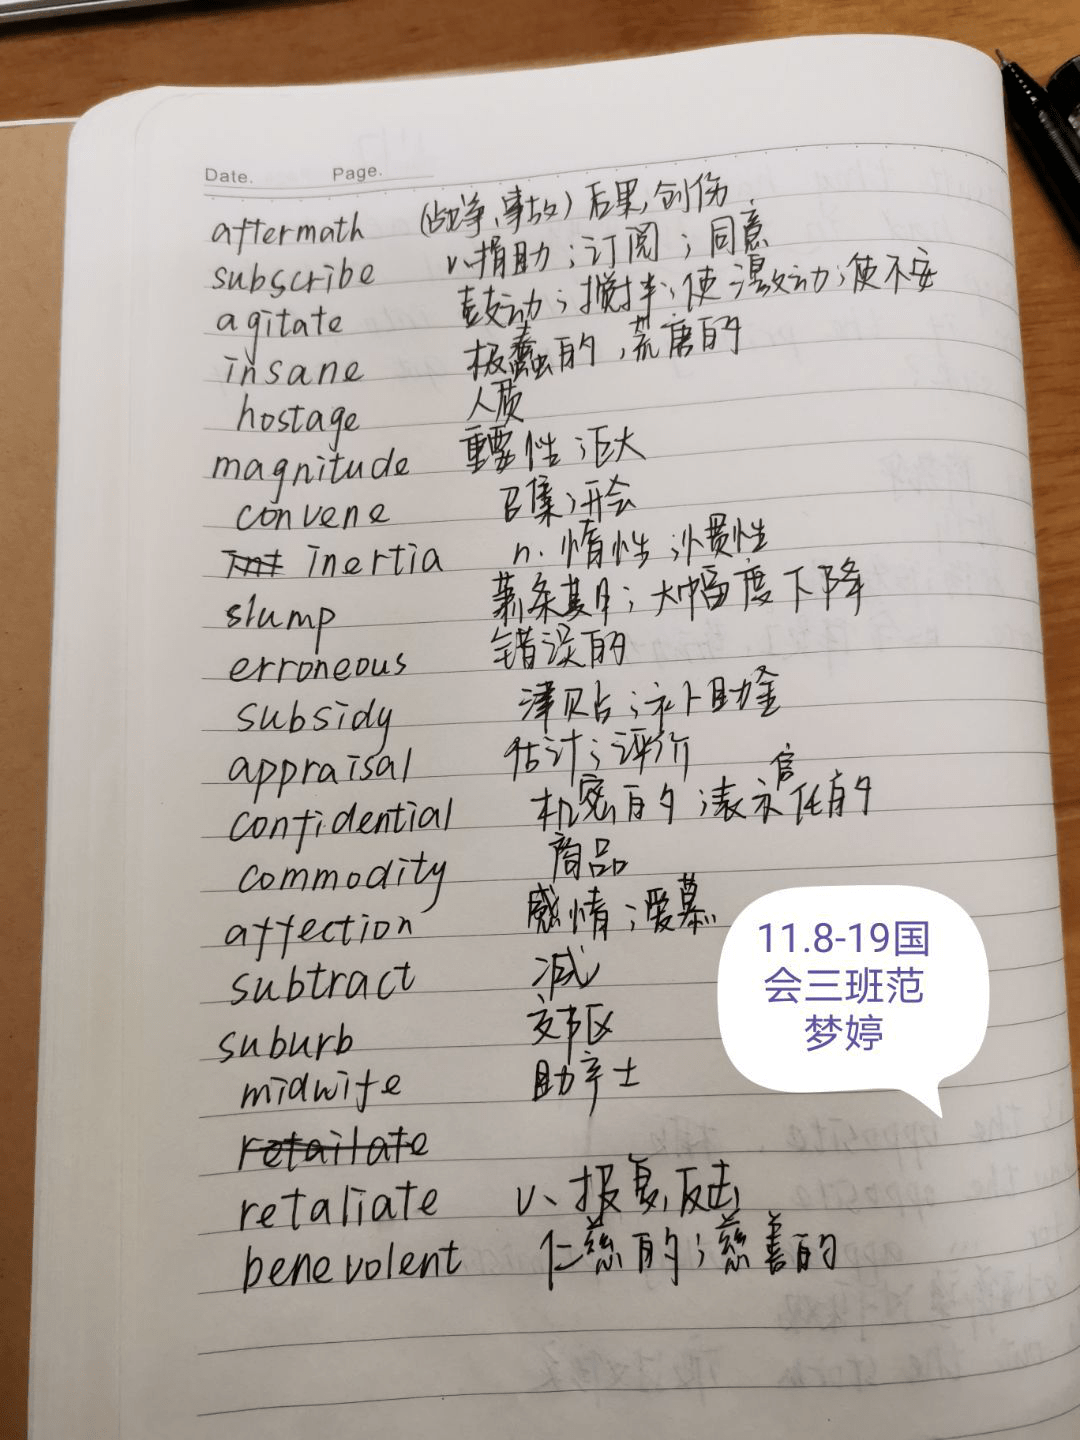 Date. Page.
aftermath (战争、事故)后果,创伤
subscribe v.捐助;订阅;同意
agitate 鼓动;搅拌;使激动;使不安
insane 极蠢的,荒唐的
hostage 人质
magnitude 重要性;巨大
convene 召集;开会
int inertia n.惰性;惯性
slump 萧条期;大幅度下降
erroneous 错误的
subsidy 津贴;补助金
appraisal 估计;评价
confidential 机密的;表示信任的
commodity 商品
affection 感情;爱慕
subtract 减
suburb 郊区
midwife 助产士
retailate
retaliate v.报复,反击
benevolent 仁慈的;慈善的
11.8-19国
会三班范
梦婷